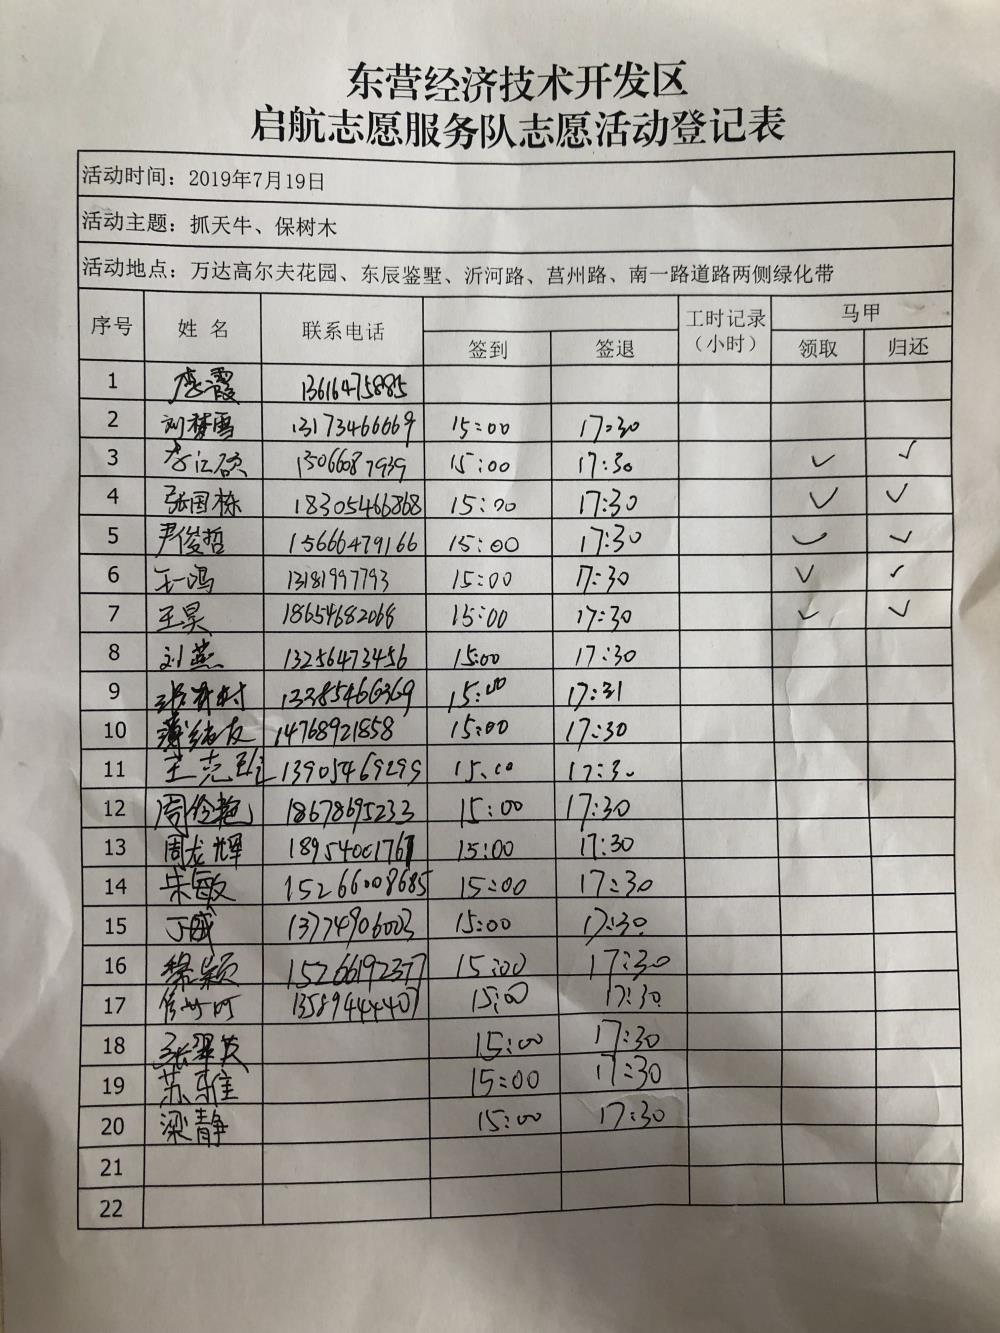 东营经济技术开发区
启航志愿服务队志愿活动登记表
活动时间：2019年7月19日
活动主题：抓天牛、保树木
活动地点：万达高尔夫花园、东辰鉴墅、沂河路、莒州路、南一路道路两侧绿化带
序号 姓 名 联系电话 签到 签退 工时记录（小时） 马甲 领取 归还
1 李霞 13616475885
2 刘梦雪 13173466669 15:00 17:30
3 13066087939 15:00 17:30 ✓ ✓
4 张国栋 18305466868 15:00 17:30 ✓ ✓
5 尹俊哲 15666479166 15:00 17:30 ✓ ✓
6 王一鸣 13181997793 15:00 17:30 ✓ ✓
7 王昊 18654682068 15:00 17:30 ✓ ✓
8 刘燕 13256473456 15:00 17:30
9 13385466369 15:00 17:31
10 14768921858 15:00 17:30
11 13905469299 15:00 17:30
12 18678695233 15:00 17:30
13 周龙辉 15:00 17:30
14 朱敏 15266008685 15:00 17:30
15 丁威 13774906003 15:00 17:30
16 徐颖 15266192377 15:00 17:30
17 13589444407 15:00 17:30
18 张翠英 15:00 17:30
19 苏雅 15:00 17:30
20 梁静 15:00 17:30
21
22